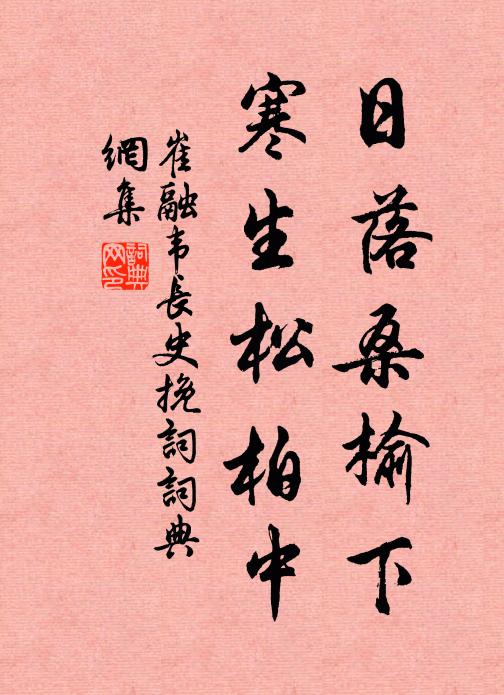 日落桑榆下
寒生松柏中
崔融韦長史挽詞詞典
網集
詞典
网印